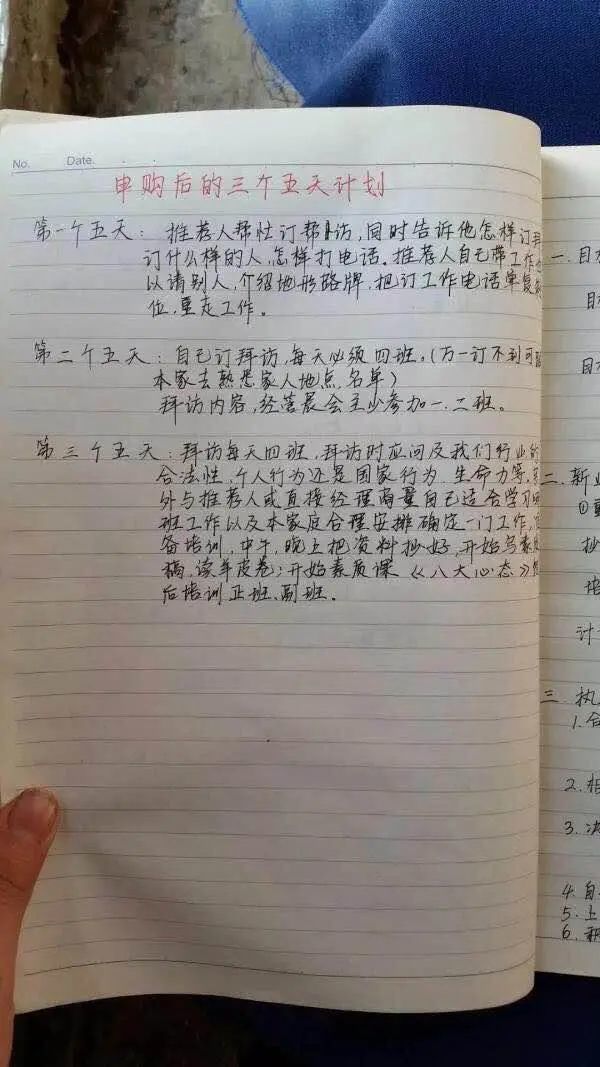 No. Date.
申购后的三个五天计划
第一个五天：推荐人帮忙订帮访,同时告诉他怎样订拜
订什么样的人,怎样打电话。推荐人自己带工作
以请别人,介绍地形路牌,把订工作电话单复
位,重走工作。
第二个五天：自己订拜访,每天必须四班。(万一订不到可
本家去熟悉家人地点,名单)
拜访内容,经营晨会至少参加一、二班。
第三个五天：拜访每天四班,拜访时应问及我们行业的
合法性,个人行为还是国家行为.生命力等,另
外与推荐人或直接经理商量自己适合学习
班工作以及本家庭合理安排确定一门工作,
备培训,中午,晚上把资料抄好,开始写素质
稿,读羊皮卷;开始素质课《八大心态》
后培训正班、副班。
一.目
目
目
二.新业
①
抄
培
计
三.执
1.合
2.相
3.决
4.自
5.上
6.